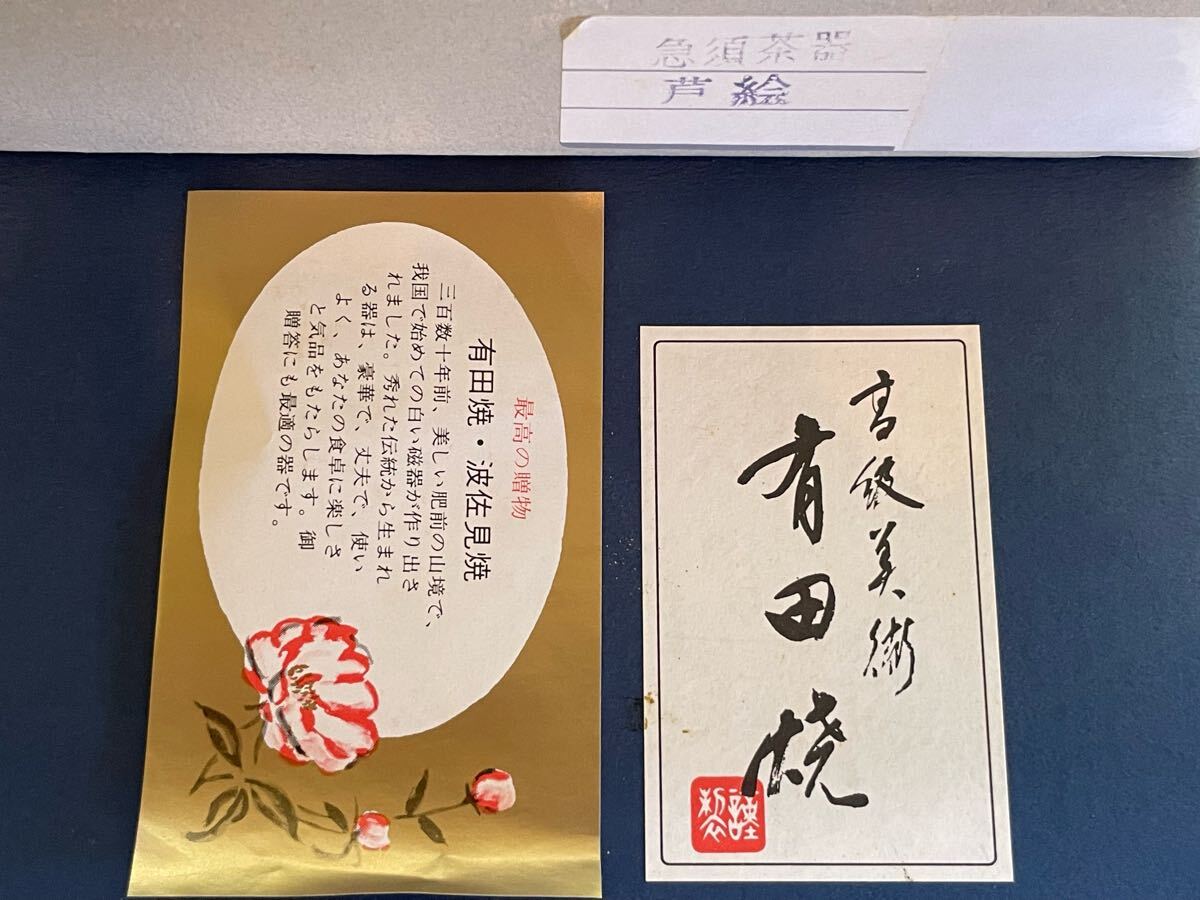 急須茶器
芦絵
最高の贈物
有田焼・波佐見焼
三百数十年前、美しい肥前の山境で、
我国で始めての白い磁器が作り出さ
れました。秀れた伝統から生まれ
る器は、豪華で、丈夫で、使い
よく、あなたの食卓に楽しさ
と気品をもたらします。御
贈答にも最適の器です。
高級美術
有田焼
謹製